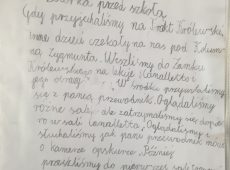 zbiórka przed szkołą
Gdy przyjechaliśmy na Trakt Królewski,
inne dzieci czekały na nas pod Kolum-
ną Zygmunta. Weszliśmy do Zamku
Królewskiego na lekcję „Canaletto i
jego W środku przywitaliśmy
się z panią przewodnik. Oglądaliśmy
różne sale, ale zatrzymaliśmy się dopie-
ro w sali Canaletta. Oglądaliśmy i
słuchaliśmy jak pani przewodnik mówi
o kamera obskura. Później
przeszliśmy do pierwszej